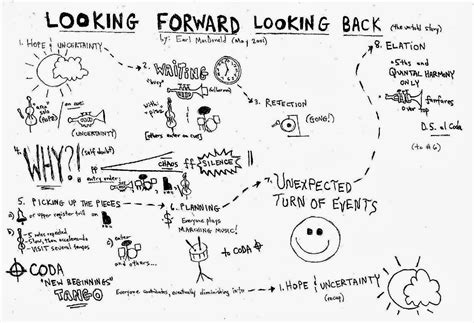 LOOKING FORWARD LOOKING BACK
(the untold story)
by: Earl MacDonald (May 2001)
1. HOPE & UNCERTAINTY
solo
on cue:
(UNCERTAINTY)
2. WAITING
"Bossy"
with
[others enter on cue]
3. REJECTION
(GONG!)
4. WHY?!
(self doubt)
ff
CHAOS
ff
SILENCE
entry order:
5. PICKING UP THE PIECES
a)
or upper register trill on
b)
- 5 notes repeated
- slow, then accelerando
- VISIT several tempos
c) enter
and others...
6. PLANNING
Everyone plays
MARCHING MUSIC!
to CODA
7. UNEXPECTED
TURN OF EVENTS
8. ELATION
- 5ths and
QUINTAL HARMONY
ONLY
- fanfares
over top
D.S. al Coda
(to #6)
CODA
"NEW BEGINNINGS"
TANGO
Everyone contributes, eventually diminishing into
1. HOPE & UNCERTAINTY
(recap)